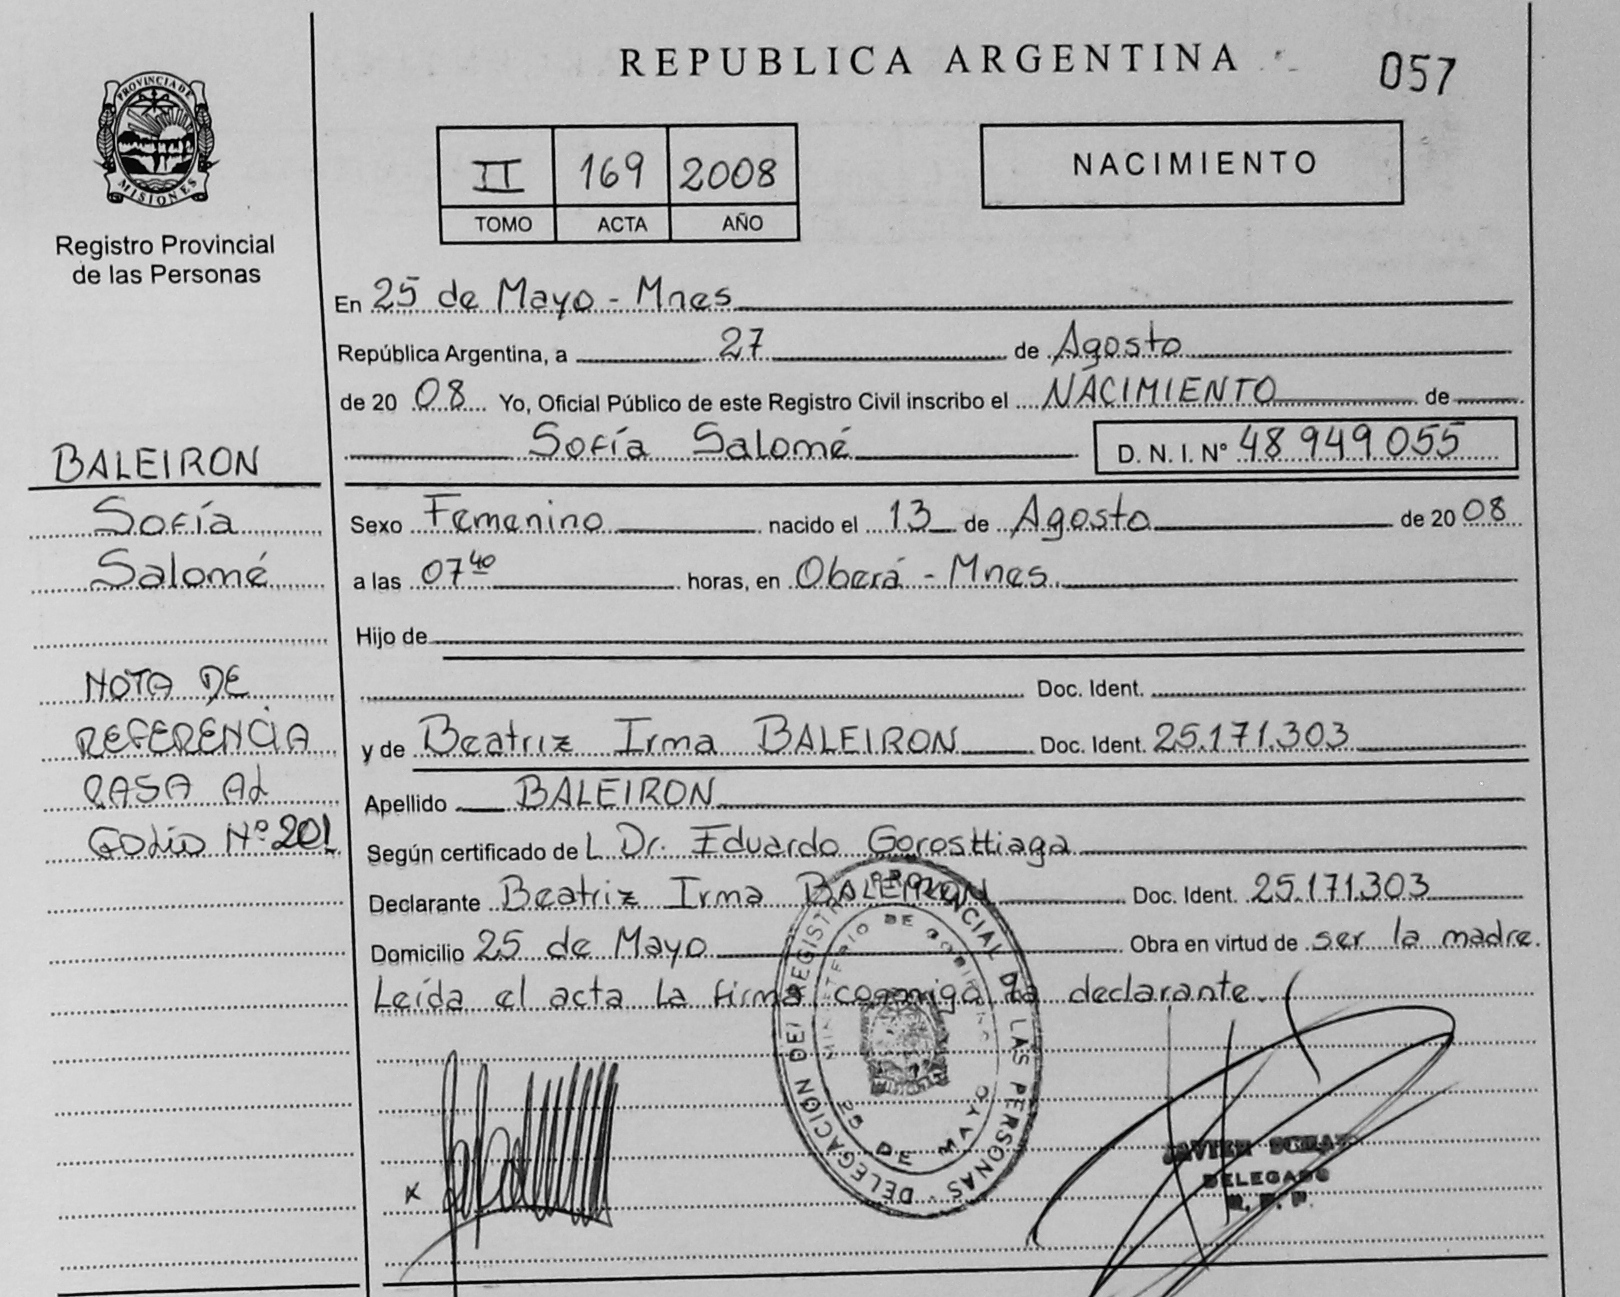 REPUBLICA ARGENTINA
057
PROVINCIA DE
MISIONES
Registro Provincial
de las Personas
II 169 2008
TOMO ACTA AÑO
NACIMIENTO
En 25 de Mayo - Mnes
República Argentina, a 27 de Agosto
de 20 08 Yo, Oficial Público de este Registro Civil inscribo el NACIMIENTO de
Sofía Salomé D. N. I. Nº 48 949 055
Sexo Femenino nacido el 13 de Agosto de 20 08
a las 07 40 horas, en Oberá - Mnes.
Hijo de
Doc. Ident.
y de Beatriz Irma BALEIRON Doc. Ident. 25.171.303
Apellido BALEIRON
Según certificado de L Dr. Eduardo Gorosttiaga
Declarante Beatriz Irma BALEIRON Doc. Ident. 25.171.303
Domicilio 25 de Mayo Obra en virtud de ser la madre.
Leída el acta la firma conmigo la declarante.
BALEIRON
Sofía
Salomé
NOTA DE
REFERENCIA
PASA AL
FOLIO Nº 201
DELEGACION DEL REGISTRO PROVINCIAL DE LAS PERSONAS
MINISTERIO DE GOBIERNO
25 DE MAYO
x
JAVIER
DELEGADO
R. P. P.